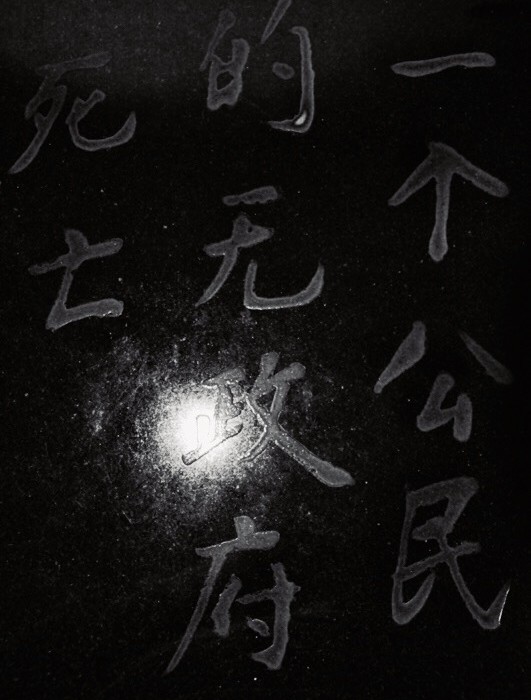 一个公民
的无政府
死亡